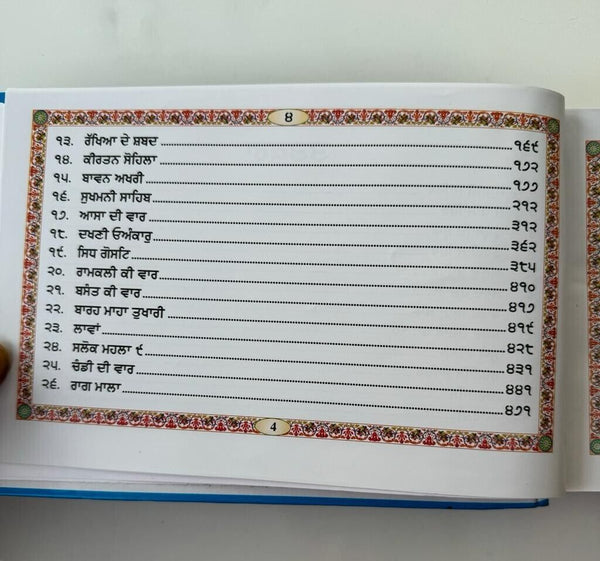 ੪
੧੩. ਰੱਖਿਆ ਦੇ ਸ਼ਬਦ ੧੬੯
੧੪. ਕੀਰਤਨ ਸੋਹਿਲਾ ੧੭੨
੧੫. ਬਾਵਨ ਅਖਰੀ ੧੭੭
੧੬. ਸੁਖਮਨੀ ਸਾਹਿਬ ੨੧੨
੧੭. ਆਸਾ ਦੀ ਵਾਰ ੩੧੨
੧੮. ਦਖਣੀ ਓਅੰਕਾਰੁ ੩੬੨
੧੯. ਸਿਧ ਗੋਸਟਿ ੩੮੫
੨੦. ਰਾਮਕਲੀ ਕੀ ਵਾਰ ੪੧੦
੨੧. ਬਸੰਤ ਕੀ ਵਾਰ ੪੧੭
੨੨. ਬਾਰਹ ਮਾਹਾ ਤੁਖਾਰੀ ੪੧੯
੨੩. ਲਾਵਾਂ ੪੨੮
੨੪. ਸਲੋਕ ਮਹਲਾ ੯ ੪੩੧
੨੫. ਚੰਡੀ ਦੀ ਵਾਰ ੪੪੧
੨੬. ਰਾਗ ਮਾਲਾ ੪੭੧
4